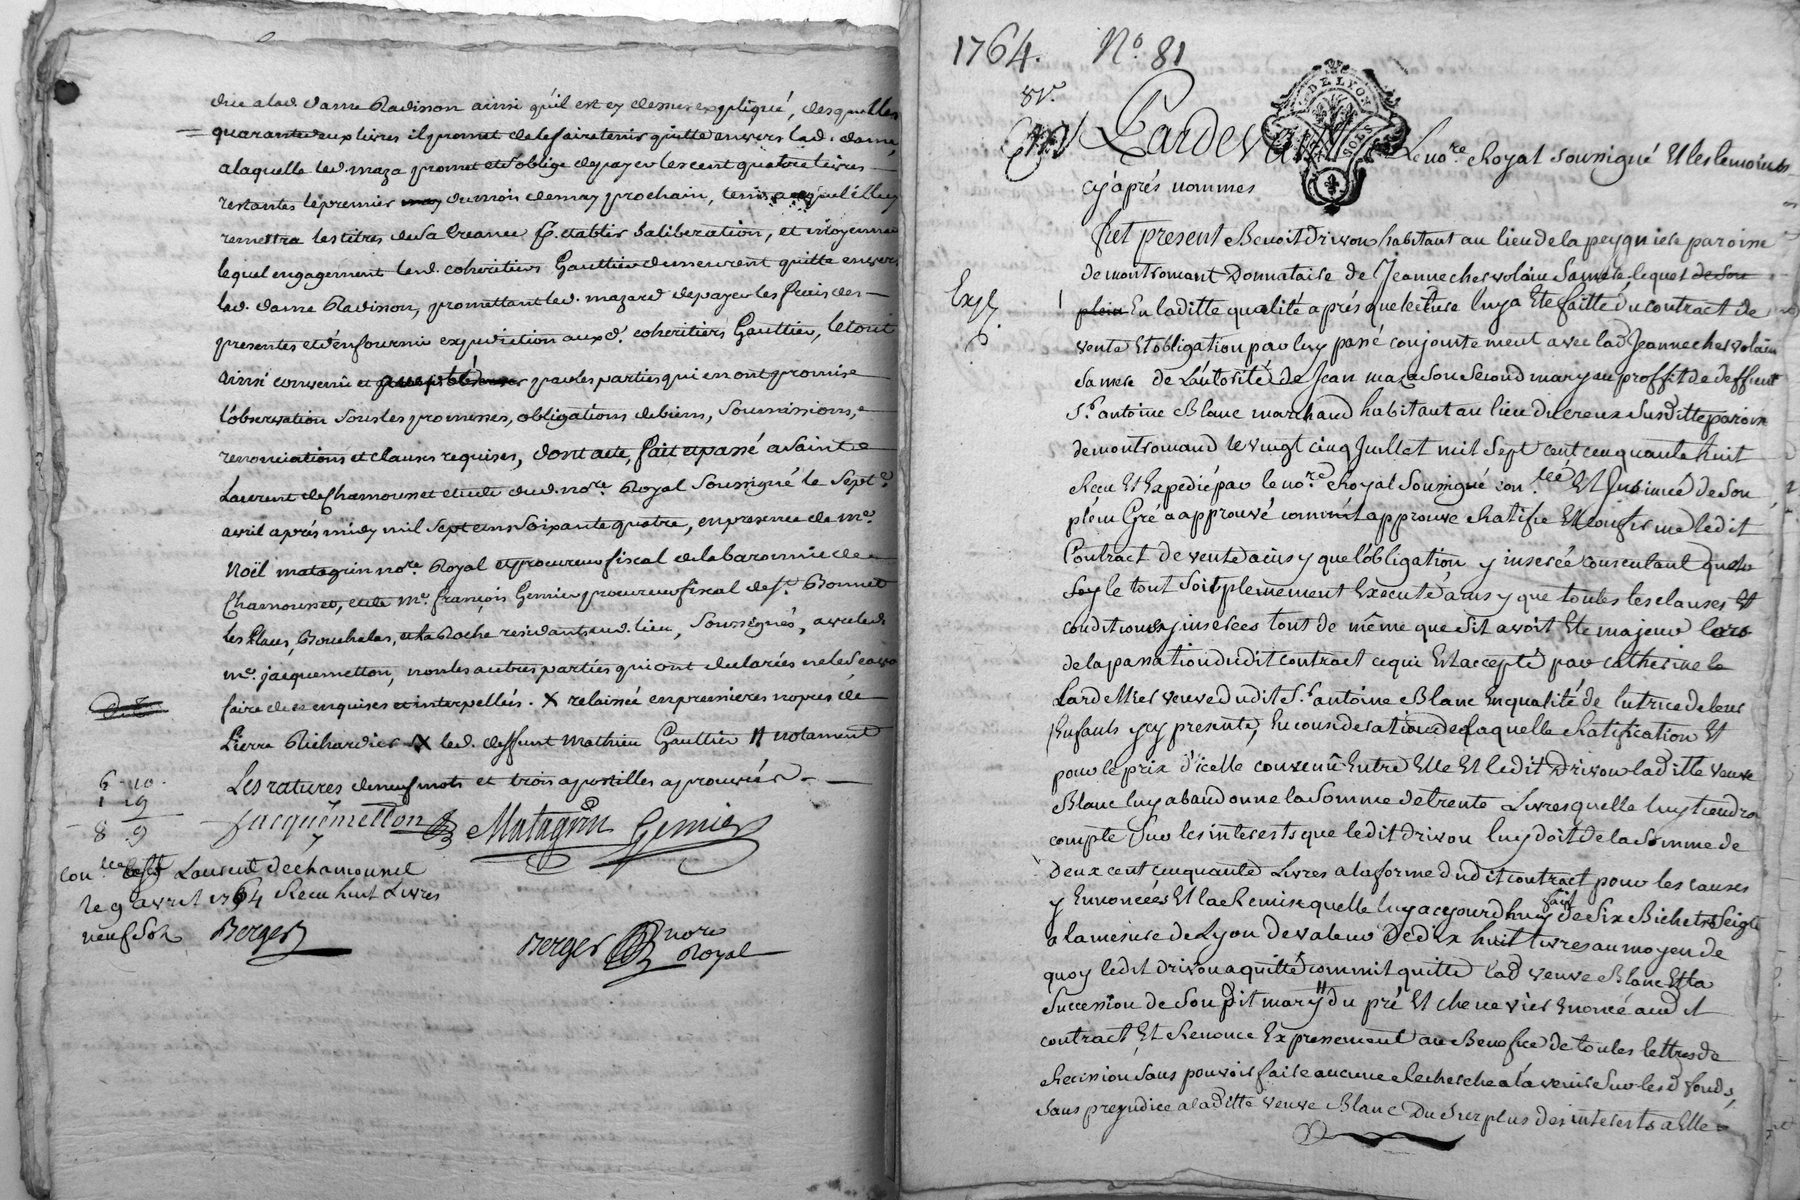 due a lad. dame Radisson ainsi qu'il est cy dessus expliqué, desquelles
quarante deux livres il promet de le faire tenir quitte envers lad. dame,
a laquelle led. maza promet et s'oblige de payer les cent quatre livres
restantes le premier du mois de may prochain, tems auquel elle luy
remettra les titres de sa creance établir sa liberation, et moyennant
lequel engagement lesd. coheritiers Gauttier demeurent quitte envers
lad. dame Radisson, promettant led. mazard de payer les frais des
presentes et d'en fournir expedition auxd. coheritiers Gauttier, le tout
ainsi convenu et par les parties qui en ont promise
l'observation sous les promesses, obligations de biens, soumissions,
renonciations et clauses requises, dont acte, fait et passé a Saint
Laurent de Chamousset etude dud. nore. Royal soussigné le sept
avril après midy mil sept cens soixante quatre, en presence de me.
Noël matagrin nore. Royal et procureur fiscal de la baronnie de
Chamousset, et de me. françois Gemier procureur fiscal de st. Bonnet
les places, Bouchalas, et la Roche residants aud. lieu, soussignés, avec led.
me. jacquemetton, non les autres parties qui ont declarées ne le scavoir
faire de ce enquises et interpellés. X relaissée en premieres nopces de
Pierre Richardier X led. deffunt Mathieu Gauttier # notament
Les ratures de neuf mots et trois apostilles aprouvées
6 10
1 19
8 9
Jacquemetton Matagrin Gemier
con.lée a St Laurent de chamousset
le 9 avril 1764 Receu huit Livres
neuf sols Berger
Berger nore Royal
1764. No. 81
8ve.
Pardevant Le nore. Royal soussigné Et les temoins
cy après nommés
fut present Benoit drivon habitant au lieu de la peyguiere paroisse
de montromant Donnataire de Jeanne chervolain sa mere, lequel de son
Exp. plein En laditte qualité après que lecture luy a Eté faitte du contract de
vente Et obligation par luy passé conjointement avec lad. Jeanne chervolain
sa mere de L'autorité de Jean maza son second mary au proffit de deffunt
Sr. antoine Blanc marchand habitant au lieu du creux susditte paroisse
de montromand le vingt cinq Juillet mil sept cent cinquante huit
Receu Et Expedié par le nore. Royal soussigné con.lée Et Insinué de son
plein Gré a approuvé comme il approuve Ratifie Et confirme ledit
Contract de vente ainsy que l'obligation y inserée consentant que
soy le tout soit pleinement Executé ainsy que toutes les clauses Et
conditions y inserées tout de même que s'il avoit Eté majeur lors
de la passation dudit contract ce qui Est accepté par Catherine
Lardellier veuve dudit Sr. antoine Blanc En qualité de tutrice de leurs
Enfants ycy presente, En consideration de laquelle Ratification Et
pour le prix d'icelle convenû Entre Elle Et ledit Drivon laditte veuve
Blanc luy abandonne la somme de trente Livres quelle luy tiendra
compte sur les interests que ledit drivon luy doit de la somme de
deux cent cinquante Livres a la forme dudit contract pour les causes
y Ennoncées Et la Remise quelle luy a cejourdhuy fait de six Bichets seigle
a la mesure de Lyon de valeur de dix huit livres au moyen de
quoy ledit drivon a quitté comme il quitte lad. veuve Blanc Et la
succession de son dit mary # du pré Et cheneviér Enoncé audit
contract, Et Renonce Expressement au Benefice de toutes lettres de
Recission sans pouvoir faire aucune Recherche a l'avenir sur lesd. fonds,
sans prejudice a laditte veuve Blanc Du surplus des interests a Elle